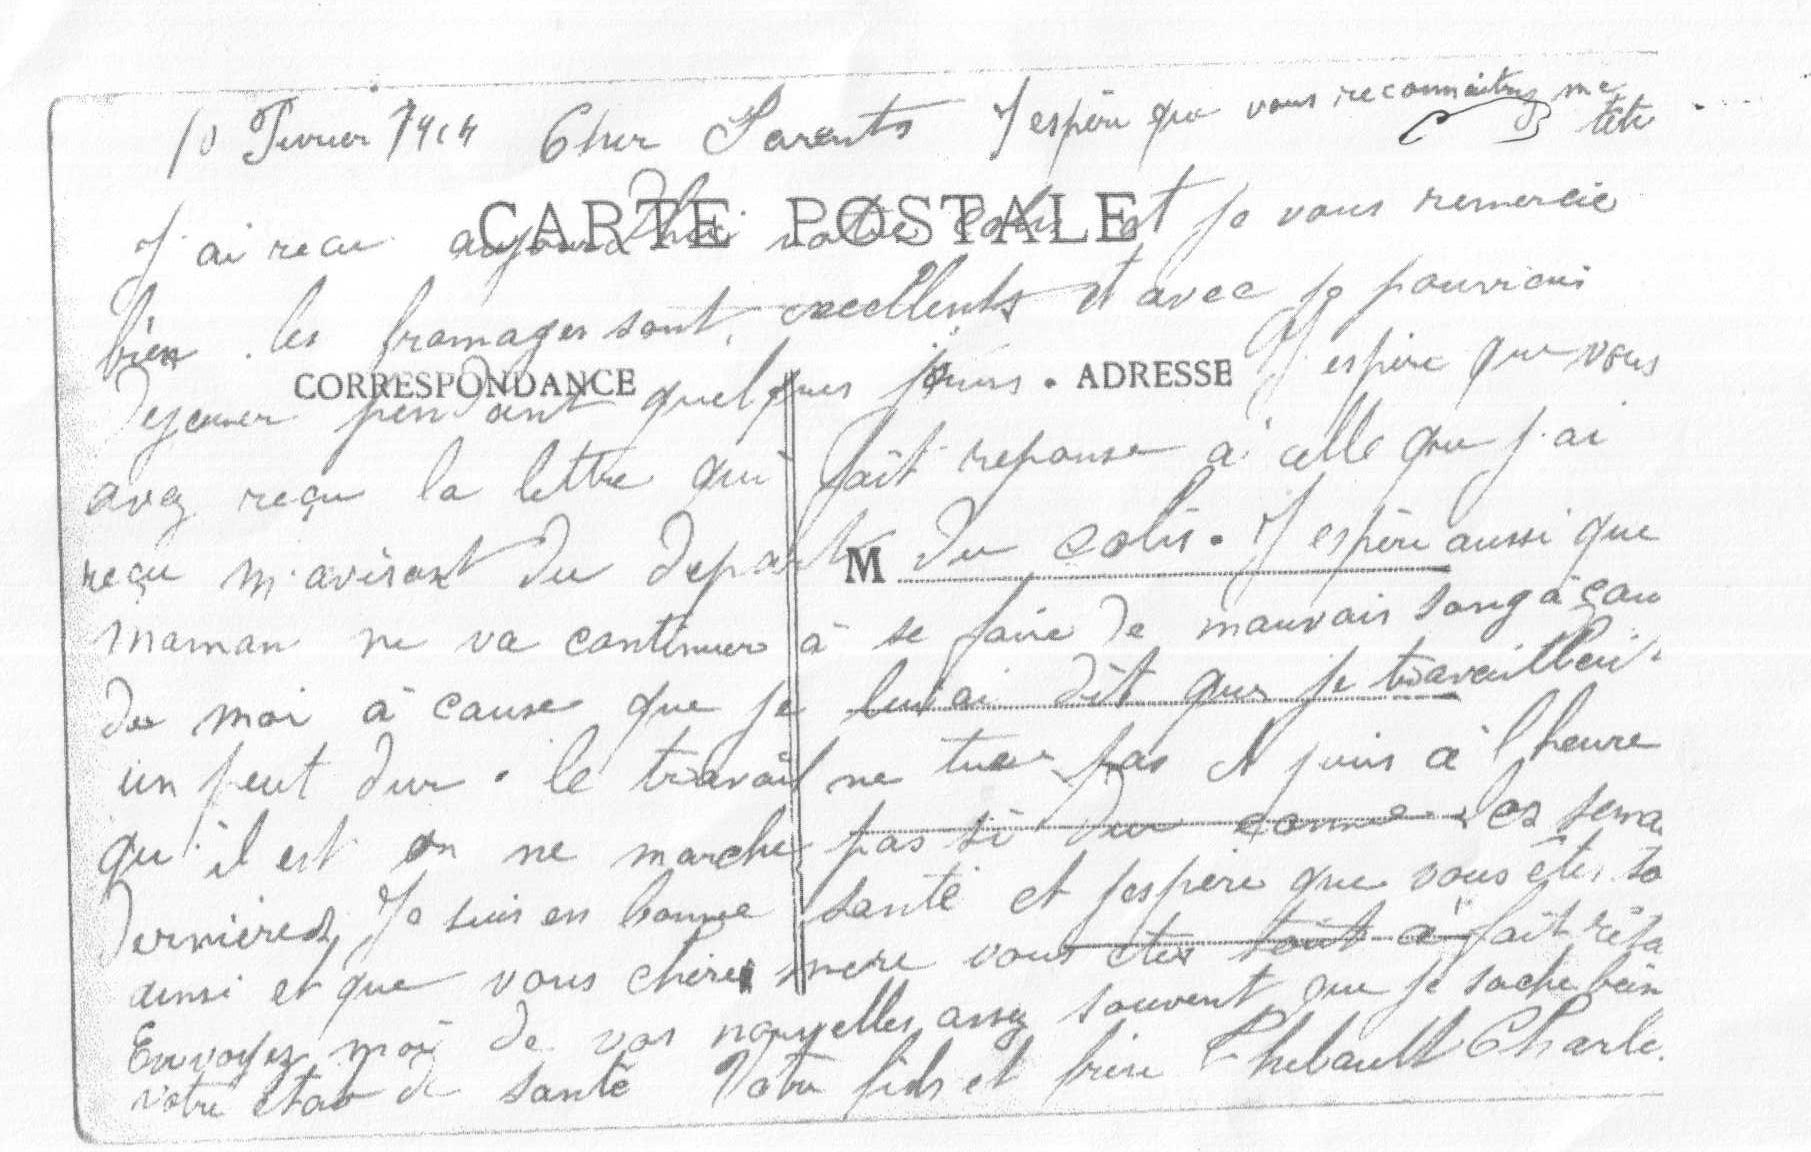 10 Fevrier 1914 Cher Parents J espère que vous reconnaitrez me
tête
CARTE POSTALE
J ai recu aujourd'hui votre colis et je vous remercie
bien . les fromages sont excellents et avec je pourrais
CORRESPONDANCE
ADRESSE
Dejeuner pendant quelques jours . J espère que vous
avez reçu la lettre qui fait reponse à celle que j'ai
reçu m'avisant du depart du colis . J espère aussi que
M
maman ne va continuer à se faire de mauvais sang à
de moi à cause que je lui ai dit que je travaillai
un peut dur . le travail ne tue pas et puis à l heure
qu'il est on ne marche pas si dur comme les sema
dernières, Je suis en bonne santé et j'espère que vous êtes to
ainsi et que vous chère mere vous etes tout à fait réta
Envoyez moi de vos nouvelles assez souvent que je sache bien
votre etat de santé Votre fils et frère Thebault Charle